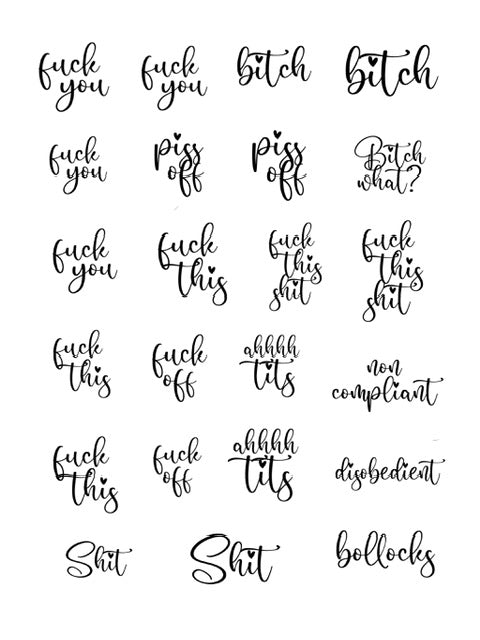 fuck
you
fuck
you
bitch
bitch
fuck
you
piss
off
piss
off
Bitch
what?
fuck
you
fuck
this
fuck
this
shit
fuck
this
shit
fuck
this
fuck
off
ahhhh
tits
non
compliant
fuck
this
fuck
off
ahhhh
tits
disobedient
Shit
Shit
bollocks